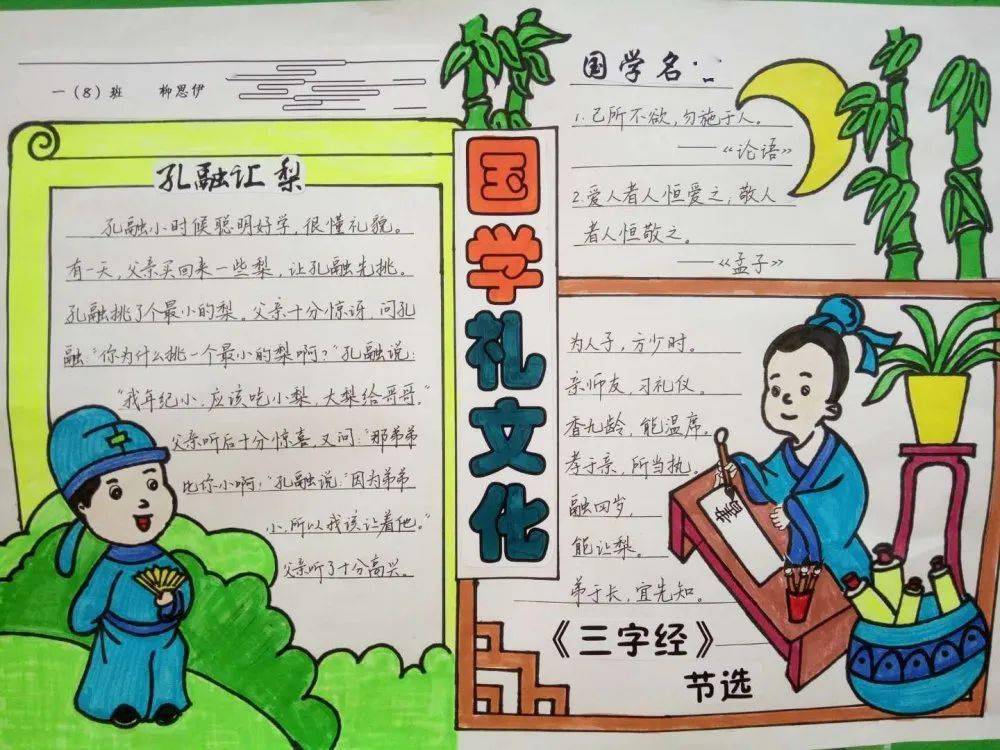 一（8）班 柳思伊
孔融让梨
孔融小时候聪明好学，很懂礼貌。
有一天，父亲买回来一些梨，让孔融先挑。
孔融挑了个最小的梨。父亲十分惊讶，问孔
融：“你为什么挑一个最小的梨啊？”孔融说：
“我年纪小，应该吃小梨，大梨给哥哥。”
父亲听后十分惊喜，又问：“那弟弟
比你小啊？”孔融说：“因为弟弟
小，所以我该让着他。”
父亲听了十分高兴。
国学礼文化
国学名
1.己所不欲，勿施于人。
——《论语》
2.爱人者人恒爱之；敬人
者人恒敬之。
——《孟子》
为人子，方少时。
亲师友，习礼仪。
香九龄，能温席。
孝于亲，所当执。
融四岁，
能让梨。
弟于长，宜先知。
《三字经》
节选